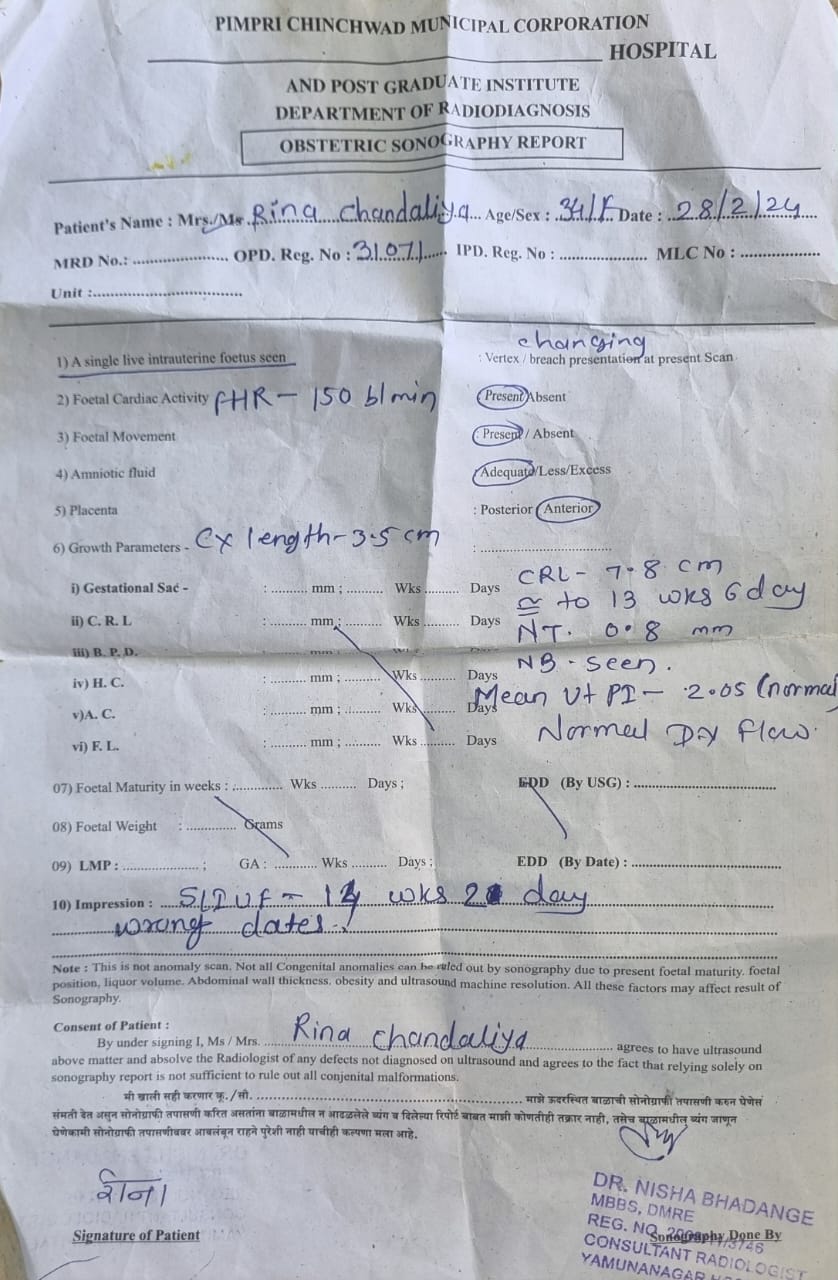 PIMPRI CHINCHWAD MUNICIPAL CORPORATION
HOSPITAL
AND POST GRADUATE INSTITUTE
DEPARTMENT OF RADIODIAGNOSIS
OBSTETRIC SONOGRAPHY REPORT
Patient's Name : Mrs./Ms. Rina Chandaliya Age/Sex : 34/F Date : 28/2/24
MRD No.: .................. OPD. Reg. No : 31071 IPD. Reg. No : .................. MLC No : ..................
Unit :..................
changing
1) A single live intrauterine foetus seen : Vertex / breach presentation at present Scan
2) Foetal Cardiac Activity FHR - 150 b/min Present/Absent
3) Foetal Movement : Present / Absent
4) Amniotic fluid Adequate/Less/Excess
5) Placenta : Posterior / Anterior
6) Growth Parameters - Cx length - 3.5 cm : ..................
i) Gestational Sac - : .......... mm ; .......... Wks .......... Days CRL - 7.8 cm
≅ to 13 wks 6 day
ii) C. R. L : .......... mm ; .......... Wks .......... Days NT. 0.8 mm
iii) B. P. D. : .......... mm ; .......... Wks .......... NB - seen.
iv) H. C. : .......... mm ; .......... Wks .......... Days
Mean Ut PI - 2.05 (normal)
v)A. C. : .......... mm ; .......... Wks .......... Days
Normal DV flow.
vi) F. L. : .......... mm ; .......... Wks .......... Days
07) Foetal Maturity in weeks : ............ Wks .......... Days ; EDD (By USG) : ..................
08) Foetal Weight : ............ Grams
09) LMP : .................. ; GA : .......... Wks .......... Days ; EDD (By Date) : ..................
10) Impression : SLIUF - wks day
wrong dates.
Note : This is not anomaly scan. Not all Congenital anomalies can be ruled out by sonography due to present foetal maturity. foetal
position, liquor volume. Abdominal wall thickness. obesity and ultrasound machine resolution. All these factors may affect result of
Sonography.
Consent of Patient :
By under signing I, Ms / Mrs. Rina Chandaliya agrees to have ultrasound
above matter and absolve the Radiologist of any defects not diagnosed on ultrasound and agrees to the fact that relying solely on
sonography report is not sufficient to rule out all conjenital malformations.
मी खाली सही करणार कू./सौ. .................. माझे ऊदरस्थित बाळाची सोनोग्राफी तपासणी करुन घेणेस
संमती देत असुन सोनोग्राफी तपासणी करित असतांना बाळामधील न आढळलेले व्यंग व दिलेल्या रिपोर्ट बाबत माझी कोणतीही तक्रार नाही, तसेच बाळामधील व्यंग जाणून
घेणेकामी सोनोग्राफी तपासणीवर आवलंबून राहने पुरेशी नाही याचीही कल्पना मला आहे.
रीना
DR. NISHA BHADANGE
MBBS, DMRE
REG. NO.
Signature of Patient Sonography Done By
CONSULTANT RADIOLOGIST
YAMUNANAGAR